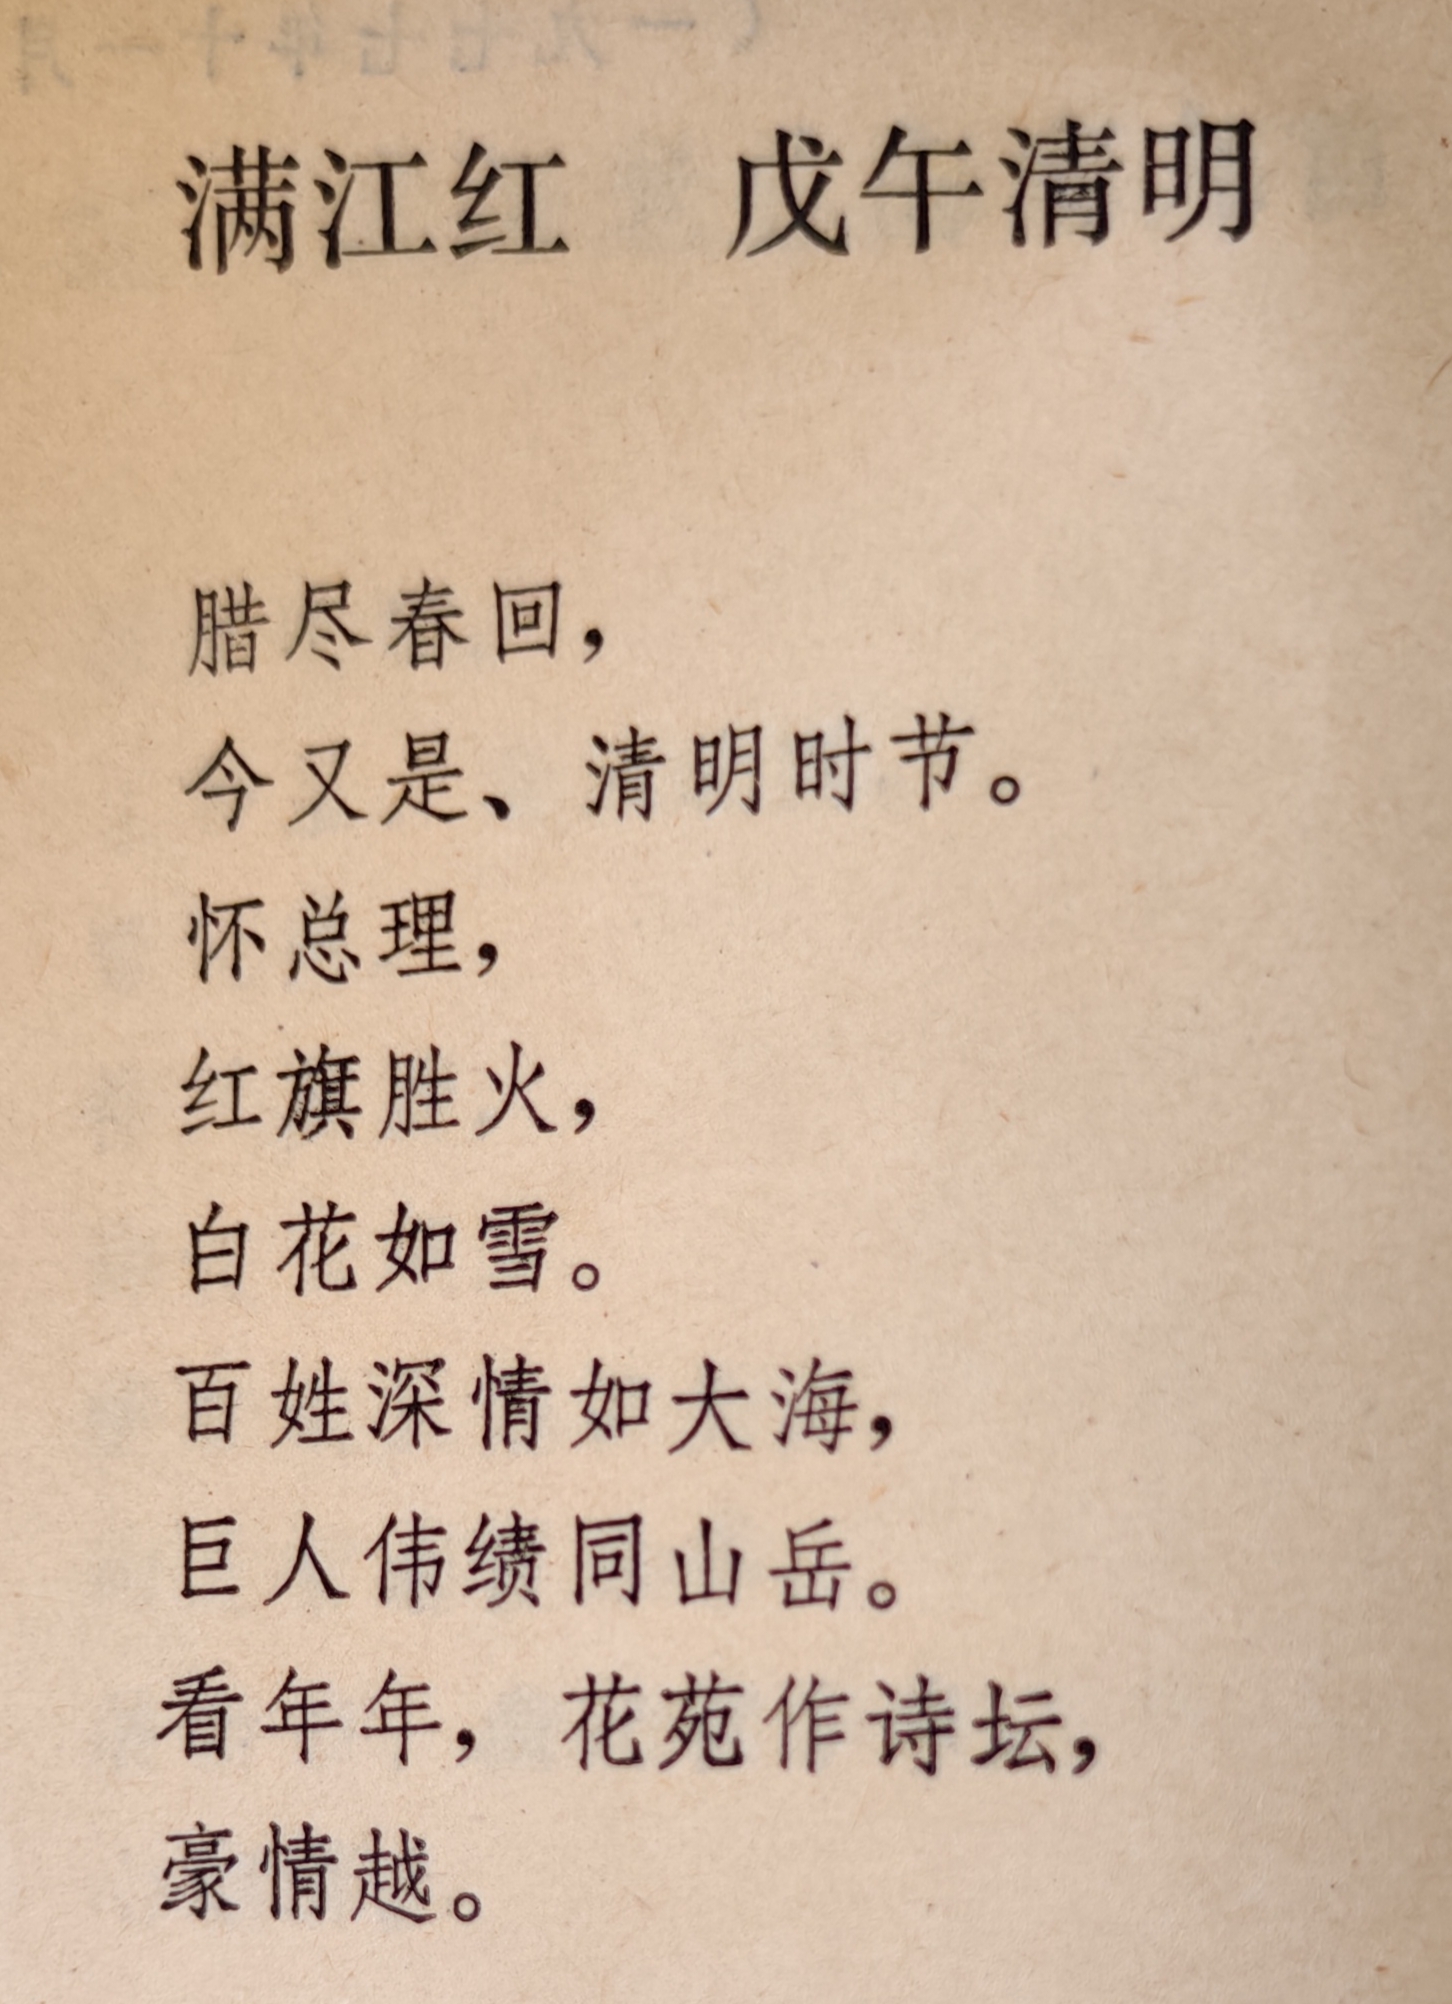 满江红　戊午清明
腊尽春回，
今又是、清明时节。
怀总理，
红旗胜火，
白花如雪。
百姓深情如大海，
巨人伟绩同山岳。
看年年，花苑作诗坛，
豪情越。